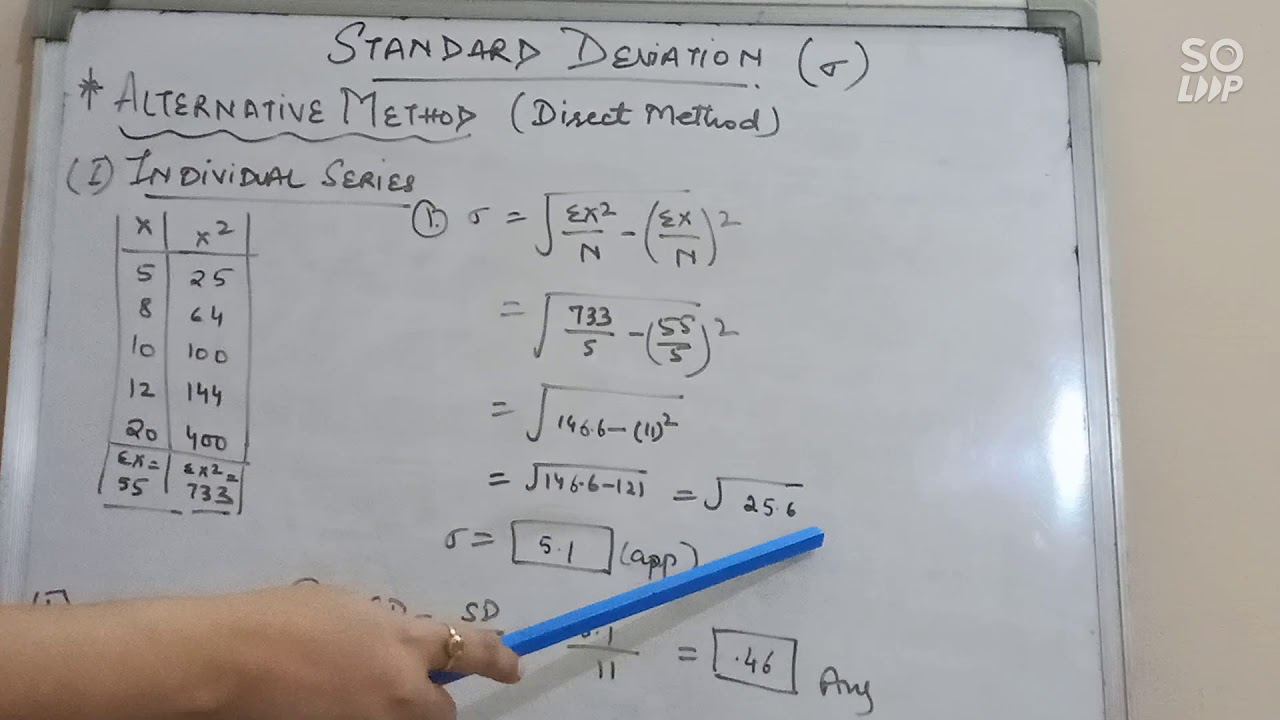 STANDARD DEVIATION (σ)
* ALTERNATIVE METHOD (Direct Method)
(I) INDIVIDUAL SERIES
X | X²
5 | 25
8 | 64
10 | 100
12 | 144
20 | 400
ΣX = 55 | ΣX² = 733
① σ = √(ΣX²/N - (ΣX/N)²)
= √(733/5 - (55/5)²)
= √(146.6 - (11)²)
= √(146.6 - 121) = √25.6
σ = 5.1 (app)
SD
11 = .46 Ans
SO LOOP